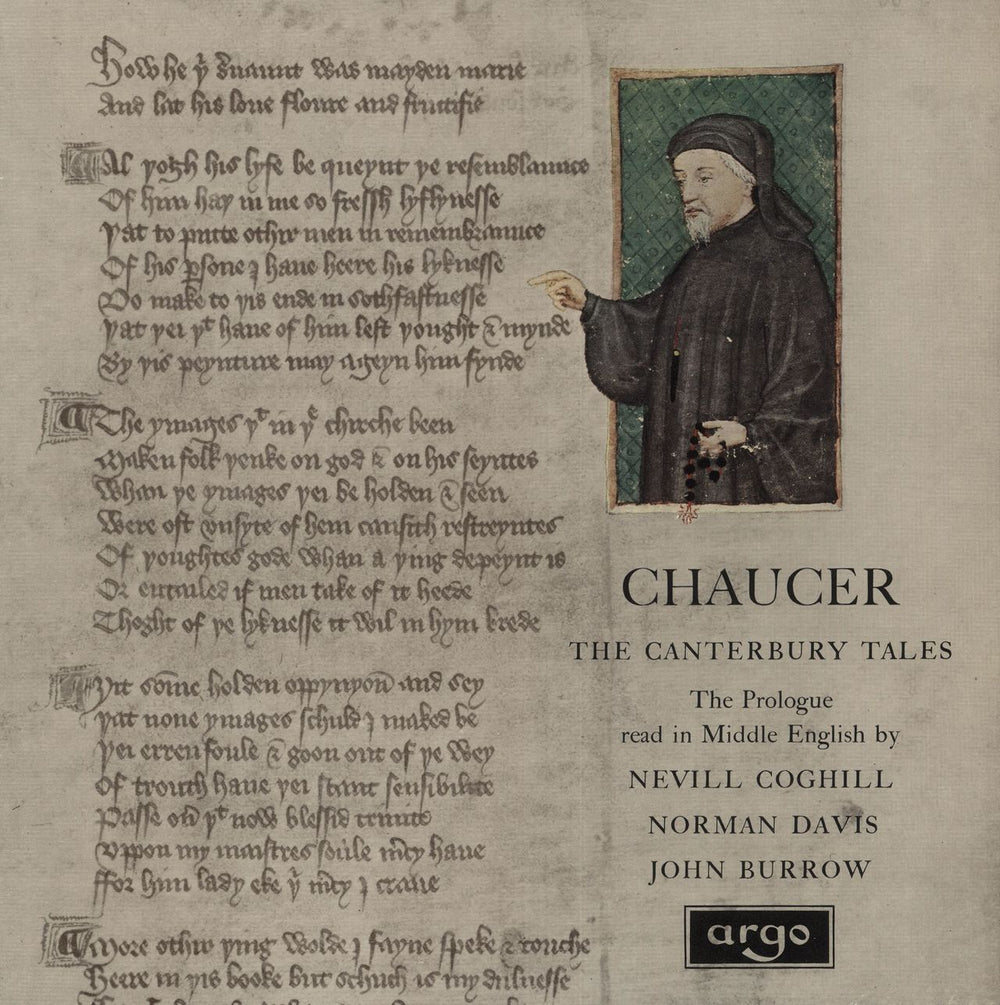 How he þͭ sˀuaunt was mayden marie
And lat his loue floure and fructifie
Al þogh his lyfe be queynt þe resemblaunce
Of him haþ in me so fressh lyflynesse
Þat to putte othir men in remembraunce
Of his ꝑsone I haue heere his lyknesse
Do make to þis ende in sothfastnesse
Þat þei þͭ haue of him left þought & mynde
By þis peynture may ageyn him fynde
The ymages þͭ in þͤ chirche been
Maken folk þenke on god & on his seyntes
Whan þe ymages þei be holden & seen
Were oft vnsyte of hem causith restreyntes
Of þoughtes gode whan a þing depeynt is
Or entailed if men take of it heede
Thoght of þe lyknesse it wil in hym brede
Yit som̄e holden oppynyon̄ and sey
Þat none ymages schuld I maked be
Þei erren foule & goon out of þe wey
Of trouth haue þei scant sensibilite
Passe ou̾ þͭ now blessid trinite
Vppon my maistres soule m̾cy haue
ffor him lady eke þͥ m̾cy I craue
More othir þing wolde I fayne speke & touche
Heere in þis booke but schuch is my dulnesse
CHAUCER
THE CANTERBURY TALES
The Prologue
read in Middle English by
NEVILL COGHILL
NORMAN DAVIS
JOHN BURROW
argo